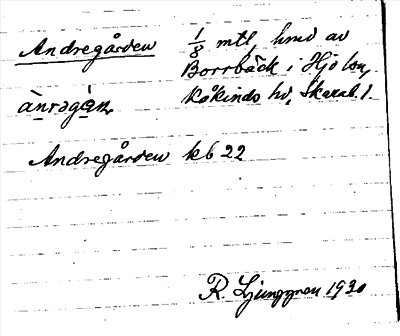 Andregården 1/8 mtl, hmd av
Borrbäck i Hjo lsn,
ànrəgá̱n, Kåkinds hd, Skarab. l.
Andregården kb 22
R. Ljunggren 1930